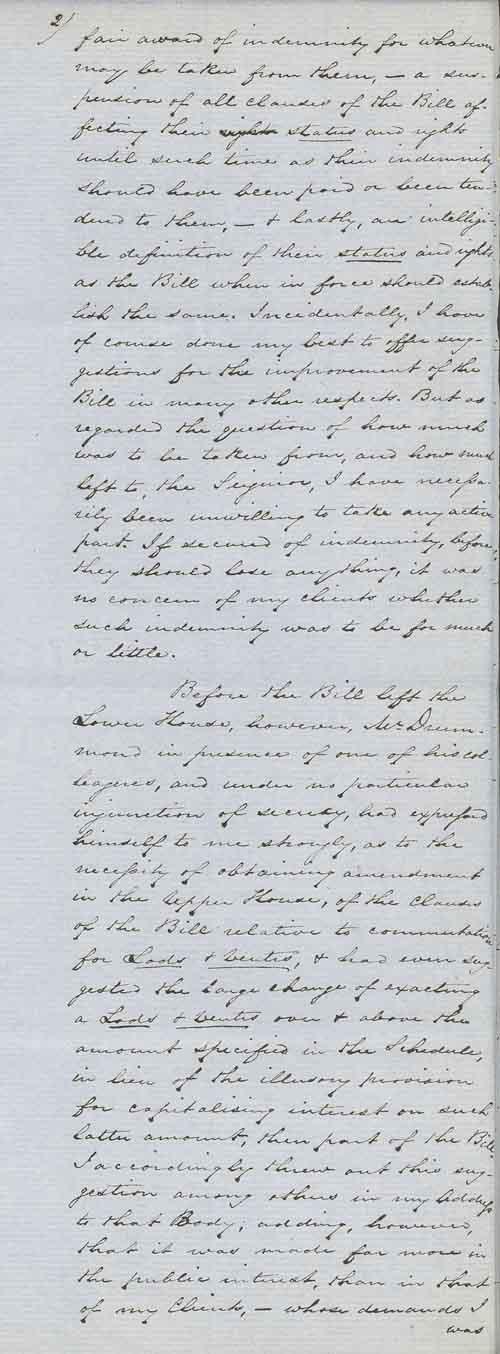 2)
fair award of indemnity for whatever
may be taken from them, — a sus-
pension of all clauses of the Bill af-
fecting their rights status and rights
until such time as their indemnity
should have been paid or been ten-
dered to them, — & lastly, an intelligi-
ble definition of their status and rights
as the Bill when in force should estab-
lish the same. Incidentally, I have
of course done my best to offer sug-
gestions for the improvement of the
Bill in many other respects. But as
regarded the question of how much
was to be taken from, and how much
left to, the Seignior, I have necessa-
rily been unwilling to take any active
part. If secured of indemnity, before
they should lose anything, it was
no concern of my clients whether
such indemnity was to be for much
or little.
Before the Bill left the
Lower House, however, Mr Drum-
mond in presence of one of his col-
leagues, and under no particular
injunction of secrecy, had expressed
himself to me strongly, as to the
necessity of obtaining amendment
in the Upper House, of the clauses
of the Bill relative to commutation
for Lods & Ventes, & had even sug-
gested the large change of exacting
a Lods & Ventes over & above the
amount specified in the Schedule,
in lieu of the illusory provision
for capitalising interest on such
latter amount, then part of the Bill.
I accordingly threw out this sug-
gestion among others in my Address
to that Body; adding, however,
that it was made far more in
the public interest, than in that
of my Clients, — whose demands I
was